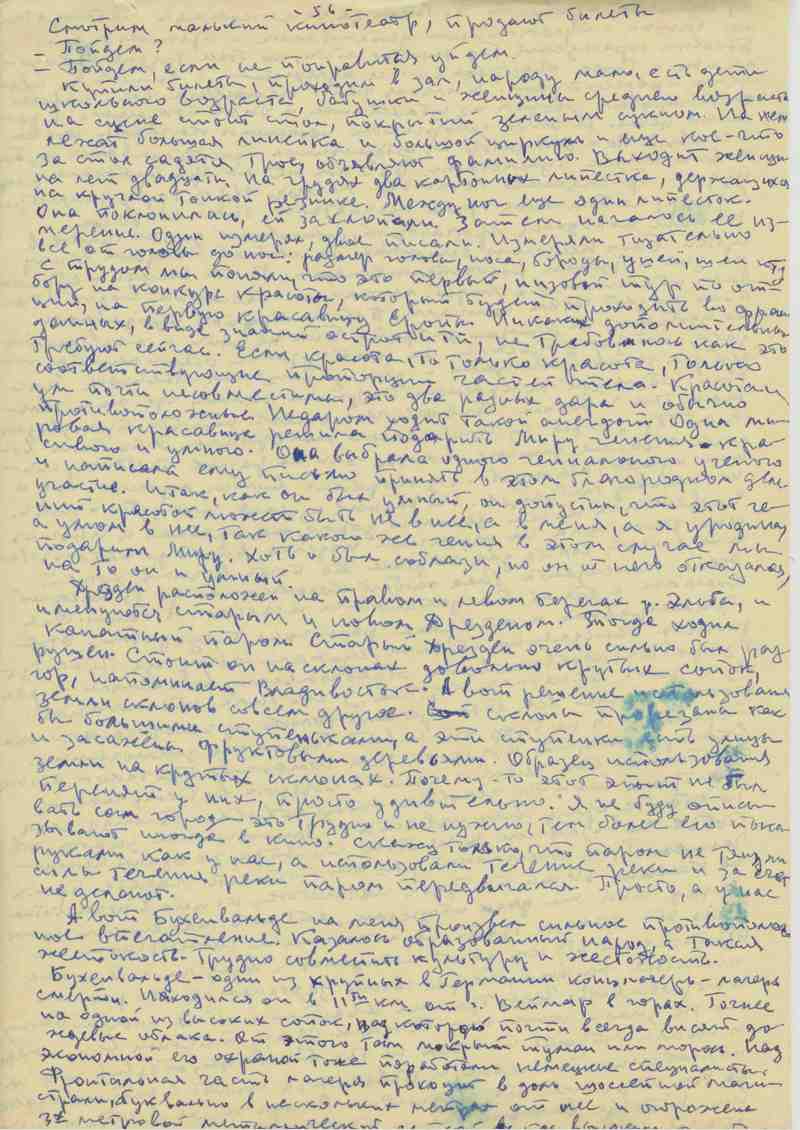 - 56 -
Смотрим маленький кинотеатр, продают билеты
- Пойдем?
- Пойдем, если не понравится уйдем.
Купили билеты, проходим в зал, народу мало, есть дети
школьного возраста, бабушки и женщины среднего возраста
На сцене стоит стол, покрытый зеленым сукном. На нем
лежат большая линейка и большой циркуль и еще кое-что
За стол садятся трое, объявляют фамилию. Выходит женщина
на лет двадцати, на грудях два картонных лепестка, держащихся
на круглой тонкой резинке. Между ног еще один лепесток.
Она поклонилась, ей захлопали. Затем началось ее из-
мерение. Один измерял, двое писали. Измеряли тщательно
все от головы до ног: размер головы, носа, бороды, ушей, шеи
С трудом мы поняли, что это первый, низовой тур по от-
бору на конкурс красоты, который будет проходить во Фран
ции, на первую красавицу Европы. Никаких дополнительных
данных, в виде знаний астрономии, не требовалось как это
требуют сейчас. Если красота, то только красота, только
соответствующие пропорции частей тела. Красота и
ум почти несовместимы, это два разных дара и обычно
противоположные. Недаром ходит такой анекдот. Одна ми-
ровая красавица решила подарить миру гения - кра-
сивого и умного. Она выбрала одного гениального ученого
и написала ему письмо принять в этом благородном деле
участие. И так, как он был умный, он допустил, что этот ге-
ний красотой может быть не в нее, а в меня, а я уродина,
а умом в нее, так какого же гения в этом случае мы
подарим миру. Хоть и был соблазн, но он от него отказался,
на то он и умный.
Дрезден расположен на правом и левом берегах р. Эльба, и
именуются старым и новым Дрезденом. Тогда ходил
канатный паром. Старый Дрезден очень сильно был раз
рушен. Стоит он на склонах довольно крутых сопок,
гор, напоминает Владивосток. А вот решение использования
земли склонов совсем другое. склоны прорезаны как
бы большими ступеньками, а эти ступеньки есть улицы
и засажены фруктовыми деревьями. Образец использования
земли на крутых склонах. Почему-то этот опыт не был
перенят у них, просто удивительно. Я не буду описы
вать сам город - это трудно и не нужно, тем более его пока
зывают иногда в кино. Скажу только, что паром не тянули
руками как у нас, а использовали течение реки и за счет
силы течения реки паром передвигался. Просто, а у нас
не делают.
А вот Бухенвальде на меня произвел сильное противополож
ное впечатление. Казалось образованный народ, а такая
жестокость. Трудно совместить культуру и жестокость.
Бухенвальде - один из крупных в Германии концлагерь - лагерь
смерти. Находился он в 11ти км. от г. Веймар в горах. Точнее
на одной из высоких сопок, над которой почти всегда висят до-
ждевые облака. От этого там мокрый туман или морось. Над
экономной его охраной тоже поработали немецкие специалисты.
Фронтальная часть лагеря проходит в доль шоссейной маги-
страли, буквально в нескольких метрах от нее и огорожена
3х метровой металлической